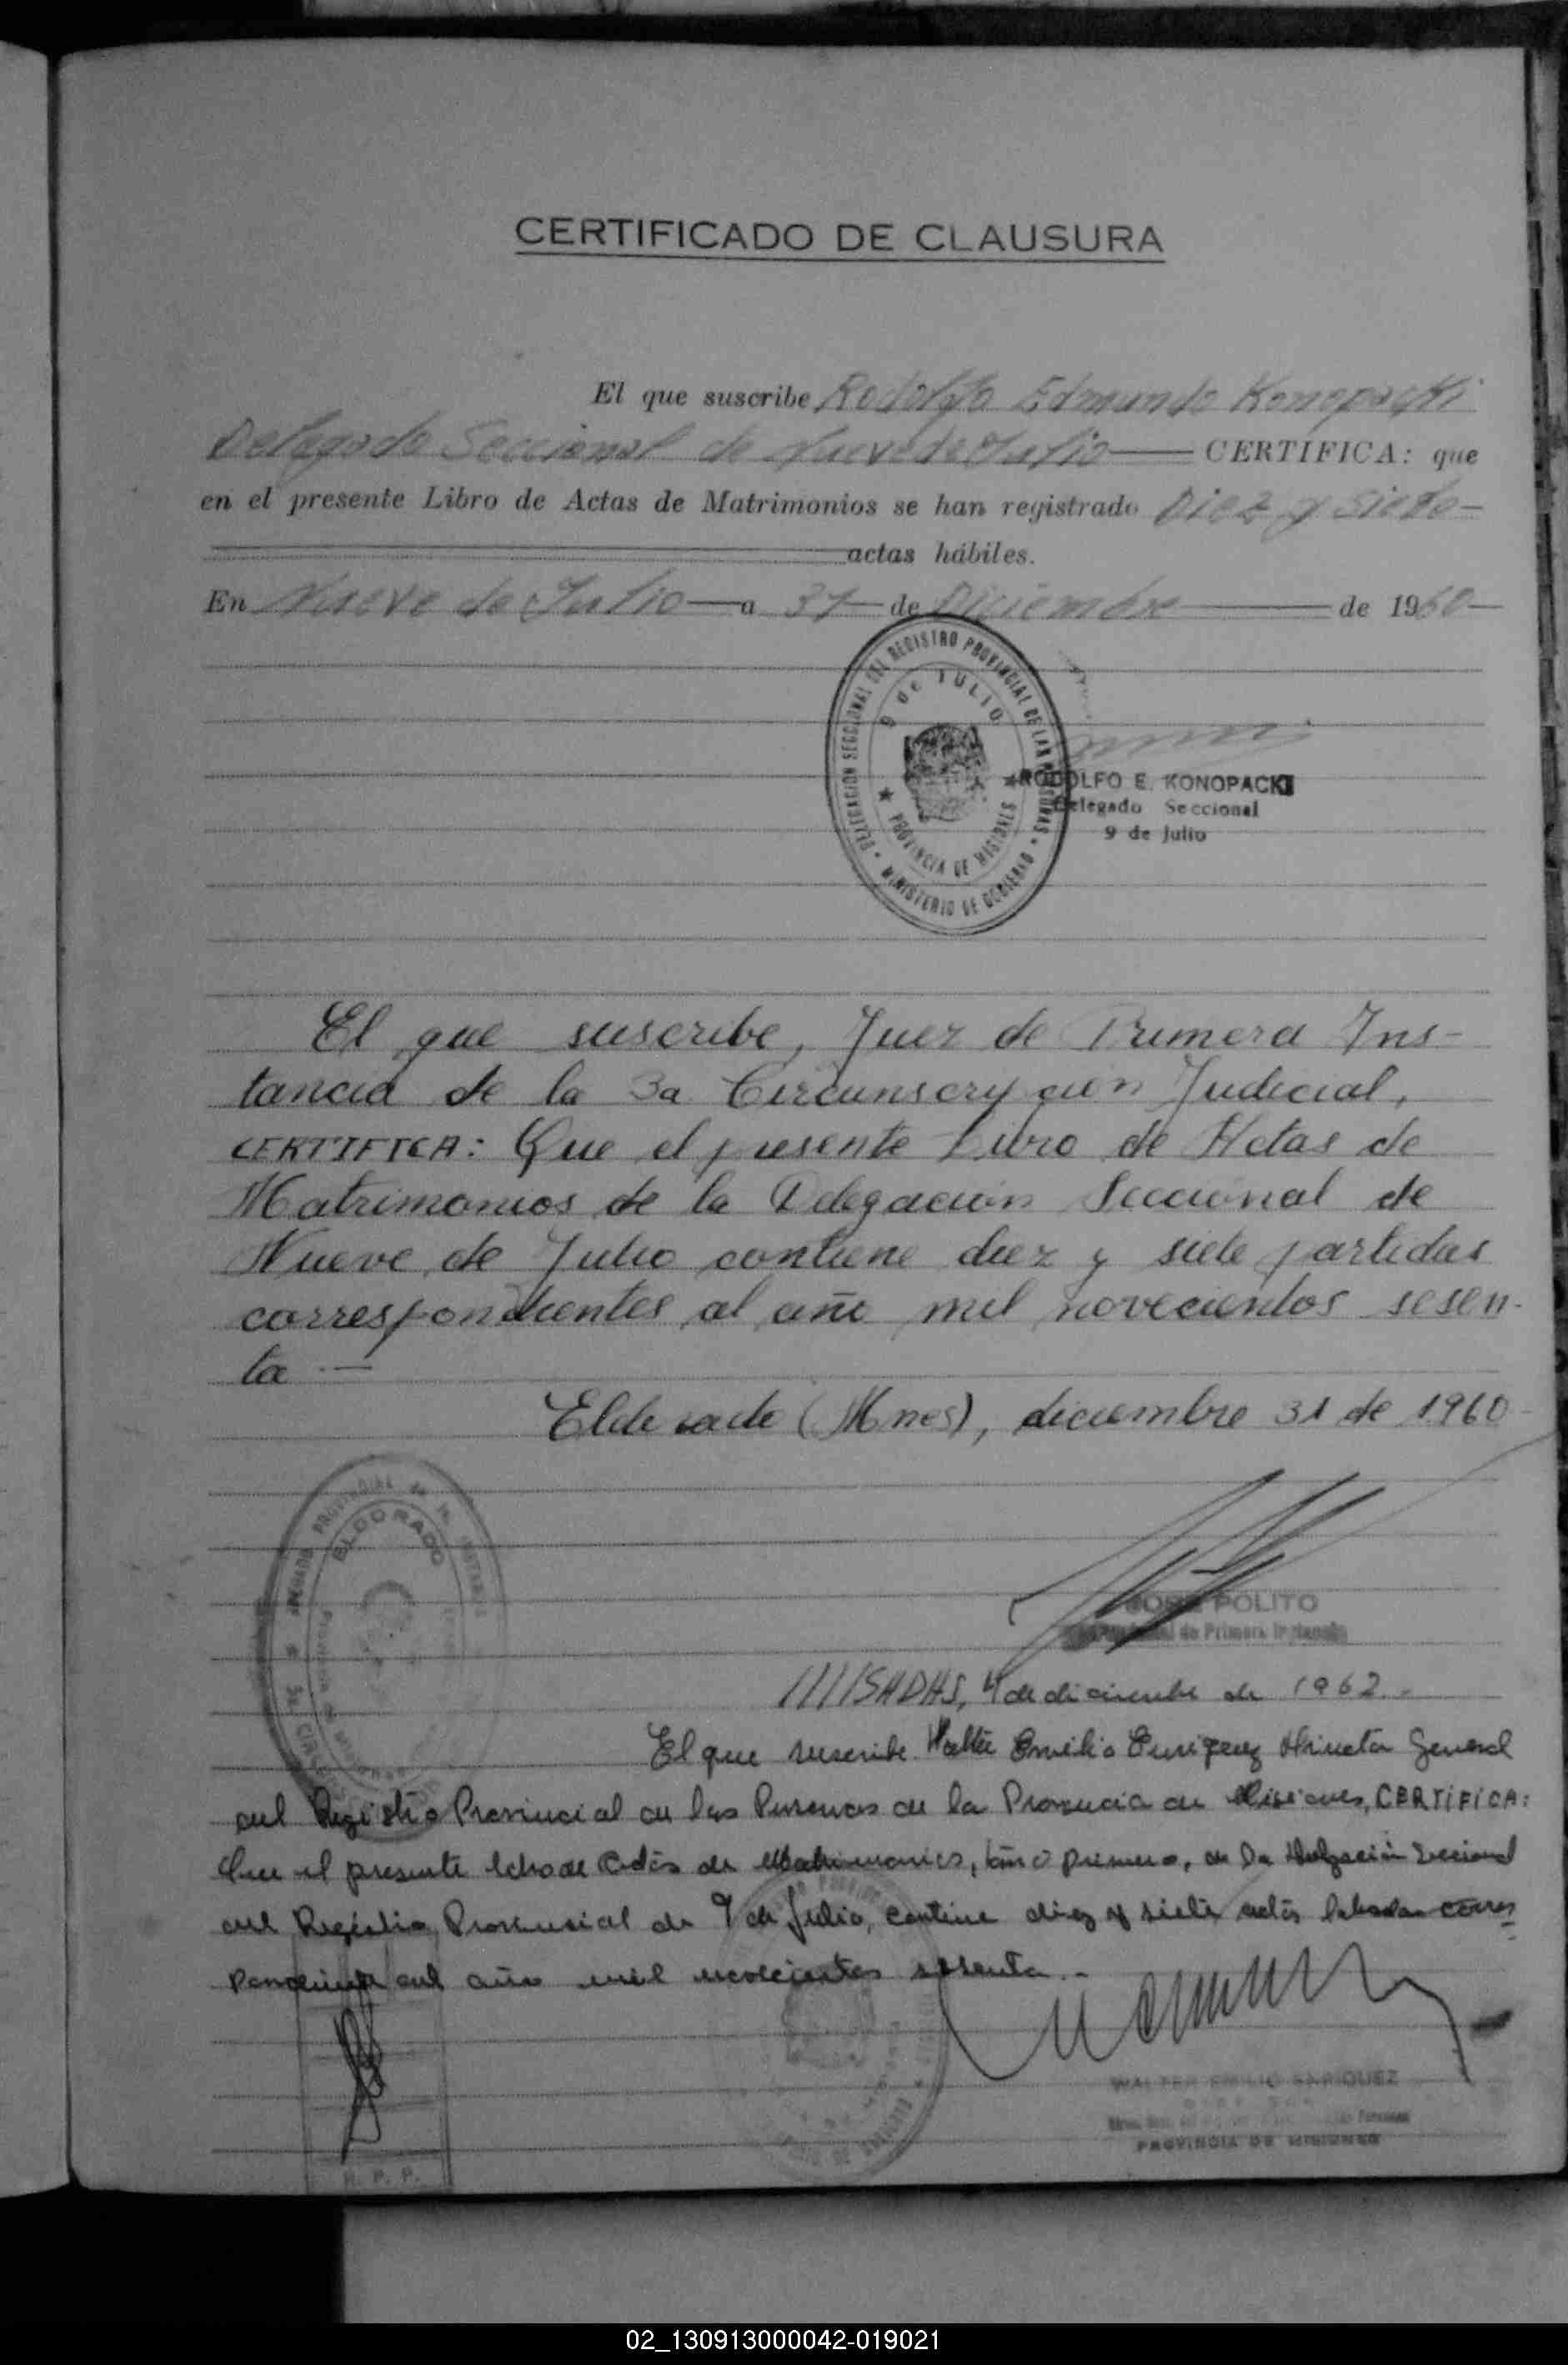 CERTIFICADO DE CLAUSURA
El que suscribe Rodolfo Edmundo Konopacki
Delegado Seccional de Nueve de Julio CERTIFICA: que
en el presente Libro de Actas de Matrimonios se han registrado Diez y siete
actas hábiles.
En Nueve de Julio a 31 de Diciembre de 1960
DELEGACION SECCIONAL DEL REGISTRO PROVINCIAL DE LAS PERSONAS
9 DE JULIO
PROVINCIA DE MISIONES
MINISTERIO DE GOBIERNO
RODOLFO E. KONOPACKI
Delegado Seccional
9 de Julio
El que suscribe, Juez de Primera Ins-
tancia de la 3a Circunscrypción Judicial,
CERTIFICA: Que el presente Libro de Actas de
Matrimonios de la Delegación Seccional de
Nueve de Julio contiene diez y siete partidas
correspondientes al año mil novecientos sesen-
ta.—
Eldorado (Mnes), diciembre 31 de 1960
ELDORADO
JOSE POLITO
de Primera Instancia
////SADAS, 4 de diciembre de 1962.-
El que suscribe Walter Emilio Enriquez Director General
del Registro Provincial de las Personas de la Provincia de Misiones, CERTIFICA:
Que el presente libro de Actas de Matrimonios, tomo primero, de la Delegación Seccional
del Registro Provincial de 9 de Julio, contiene diez y siete actas labradas corres
pondiente del año mil novecientos sesenta.-
WALTER EMILIO ENRIQUEZ
PROVINCIA DE MISIONES
R. P. P.
02_130913000042-019021